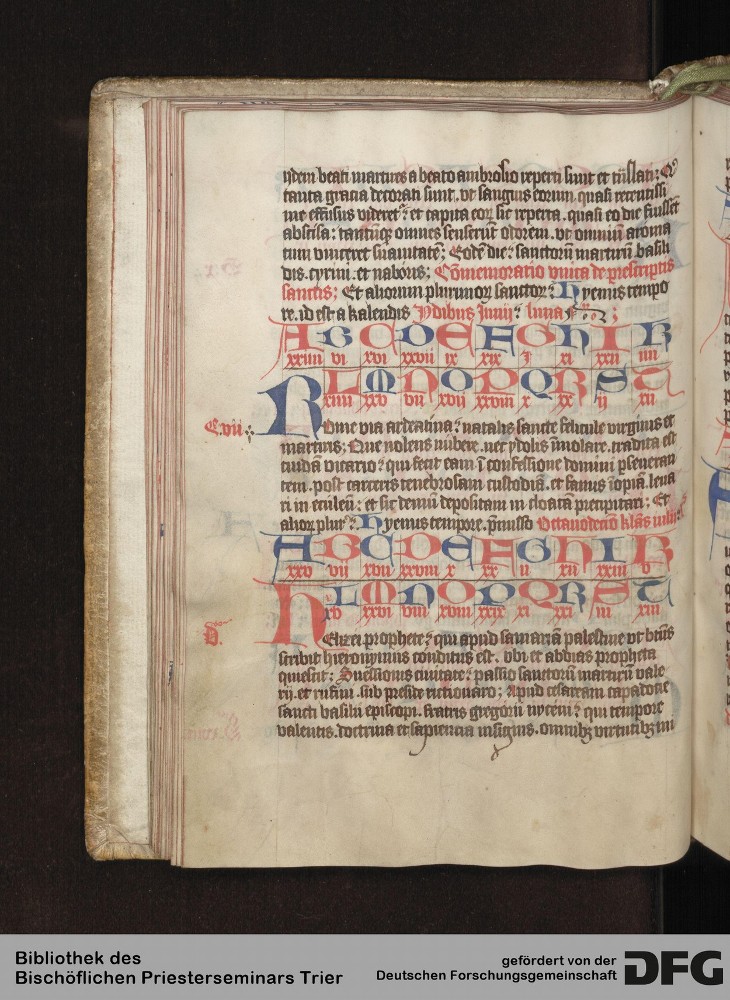 ijdem beati martires a beato ambrosio reperti sunt et trāslati; Et
tanta gracia decorati sunt. vt sanguis eorum quasi recentissi
me effusus videretᷣ: et capita eoꝝ sic reperta. quasi eo die fuissēt
abscisa: tantūqꝫ omnes senserūt odorem. vt omniū aroma
tum vinceret suauitatē; Eodē die: sanctorū martirū basili
dis. cyrini. et naboris; Cōmemoratio vnica de prescriptis
sanctis; Et aliorum plurimoꝝ sanctoꝝ: Hyemis tempo
re. id est a kalendis Ydibus Iunij: luna
A B C D E F G H I K
xxiiii vi xvi xxvii ix xix i xi xxii iiii
L M N O P Q R S T
xiiii xxv vii xvii xxviii x xx ii xii
C. vii.
Rome via ardeatina: natalis sancte felicule virginis et
martiris; Que nolens nubere. nec ydolis īmolare. tradita est
cuidā vicario: qui fecit eam ī confessione domini ꝑseueran
tem. post carceris tenebrosam custodiā. et famis īopiā. leua
ri in eculeū: et sic demū depositam in cloacā precipitari; Et
alioꝝ plurᷣ: Hyemis tempore. p̄misso Octauodecīo klās iulij:
A B C D E F G H I K
xxv vii xvii xxviii x xx ii xii xxiii v
L M N O P Q R S T
xv xxvi viii xviii xxix xi xxi iii xiii
D.
Helizei prophete: qui apud samariā palestine vt btūs
scribit hieronymus conditus est. vbi et abdias propheta
quiescit; Suessionis ciuitate: passio sanctorū martirū vale
rij. et rufini. sub preside rictionaro; Apud cesaream capadocie
sancti basilij episcopi. fratris gregorij nyceni: qui tempore
valentis. doctrina et sapiencia insignis. omnibꝫ virtutibꝫ mi
Bibliothek des
Bischöflichen Priesterseminars Trier
gefördert von der
Deutschen Forschungsgemeinschaft DFG